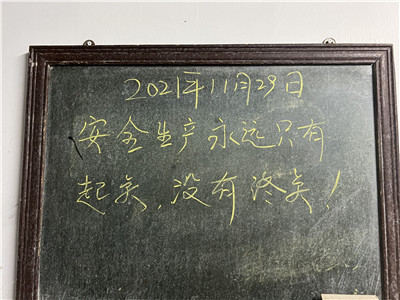 2021年11月29日
安全生产永远只有
起点，没有终点！